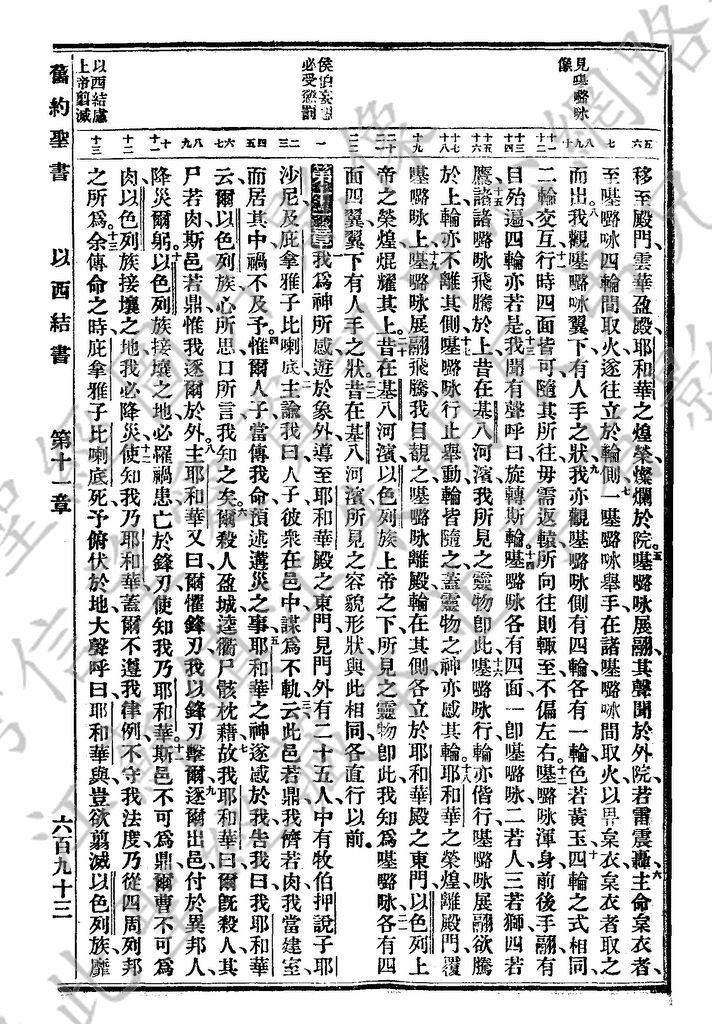 見𠼻㗉咏像
侯伯妄思必受懲罰
以西結慮上帝翦滅
移至殿門雲華盈殿耶和華之煌榮燦爛於院𠼻㗉咏展翮其聲聞於外院若雷震轟主命枲衣者
至𠼻㗉咏四輪間取火遂往立於輪側一𠼻㗉咏舉手在諸𠼻㗉咏間取火以畀枲衣枲衣者取之
而出我觀𠼻㗉咏翼下有人手之狀我亦觀𠼻㗉咏側有四輪各有一輪色若黃玉四輪之式相同
二輪交互行時四面皆可隨其所往毋需返轅所向往則輒至不偏左右𠼻㗉咏渾身前後手翮有
目殆遍四輪亦若是我聞有聲呼曰旋轉斯輪𠼻㗉咏各有四面一卽𠼻㗉咏二若人三若獅四若
鷹諸𠼻㗉咏飛騰於上昔在基八河濱我所見之靈物卽此𠼻㗉咏行輪亦偕行𠼻㗉咏展翮欲騰
於上輪亦不離其側𠼻㗉咏行止舉動輪皆隨之蓋靈物之神亦感其輪耶和華之榮煌離殿門覆
𠼻㗉咏上𠼻㗉咏展翮飛騰我目覩之𠼻㗉咏離殿輪在其側各立於耶和華殿之東門以色列上
帝之榮煌焜耀其上昔在基八河濱以色列族上帝之下所見之靈物卽此我知為𠼻㗉咏各有四
面四翼翼下有人手之狀昔在基八河濱所見之容貌形狀與此相同各直行以前
第十一章我為神所感遊於象外導至耶和華殿之東門見門外有二十五人中有牧伯押說子耶
沙尼及庇拿雅子比喇底主諭我曰人子彼衆在邑中謀為不軌云此邑若鼎我儕若肉我當建室
而居其中禍不及予惟爾人子當傳我命預述遘災之事耶和華之神遂感於我告我曰我耶和華
云爾以色列族心所思口所言我知之矣爾殺人盈城逵衢尸骸枕藉故我耶和華曰爾旣殺人其
尸若肉斯邑若鼎惟我逐爾於外主耶和華又曰爾懼鋒刃我以鋒刃擊爾逐爾出邑付於異邦人
降災爾躬以色列族接壤之地必罹禍患亡於鋒刃使知我乃耶和華斯邑不可為鼎爾曹不可為
肉以色列族接壤之地我必降災使知我乃耶和華蓋爾不遵我律例不守我法度乃從四周列邦
之所為余傳命之時庇拿雅子比喇底死予俯伏於地大聲呼曰耶和華與豈欲翦滅以色列族靡
舊約聖書 以西結書 第十一章 六百九十三